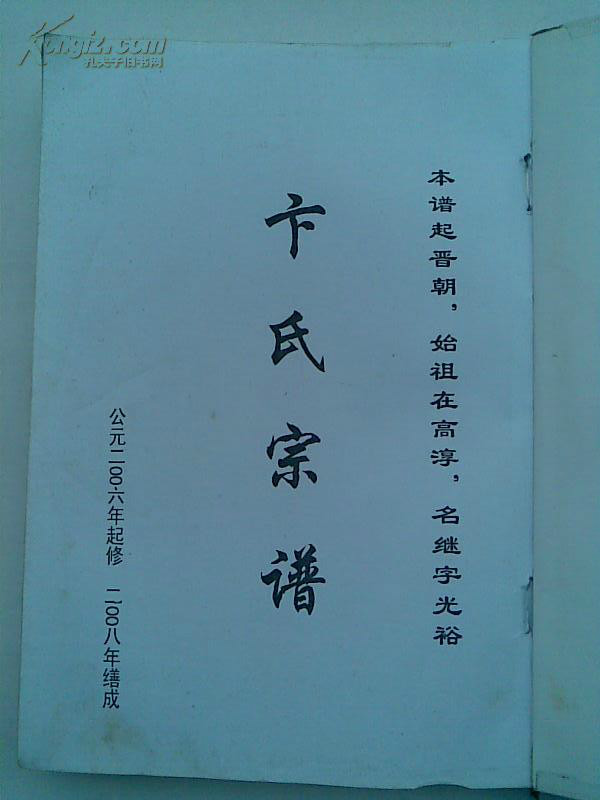 Kongfz.com
孔夫子旧书网
本谱起晋朝，始祖在高淳，名继字光裕
卞氏宗谱
公元二〇〇六年起修 二〇〇八年缮成